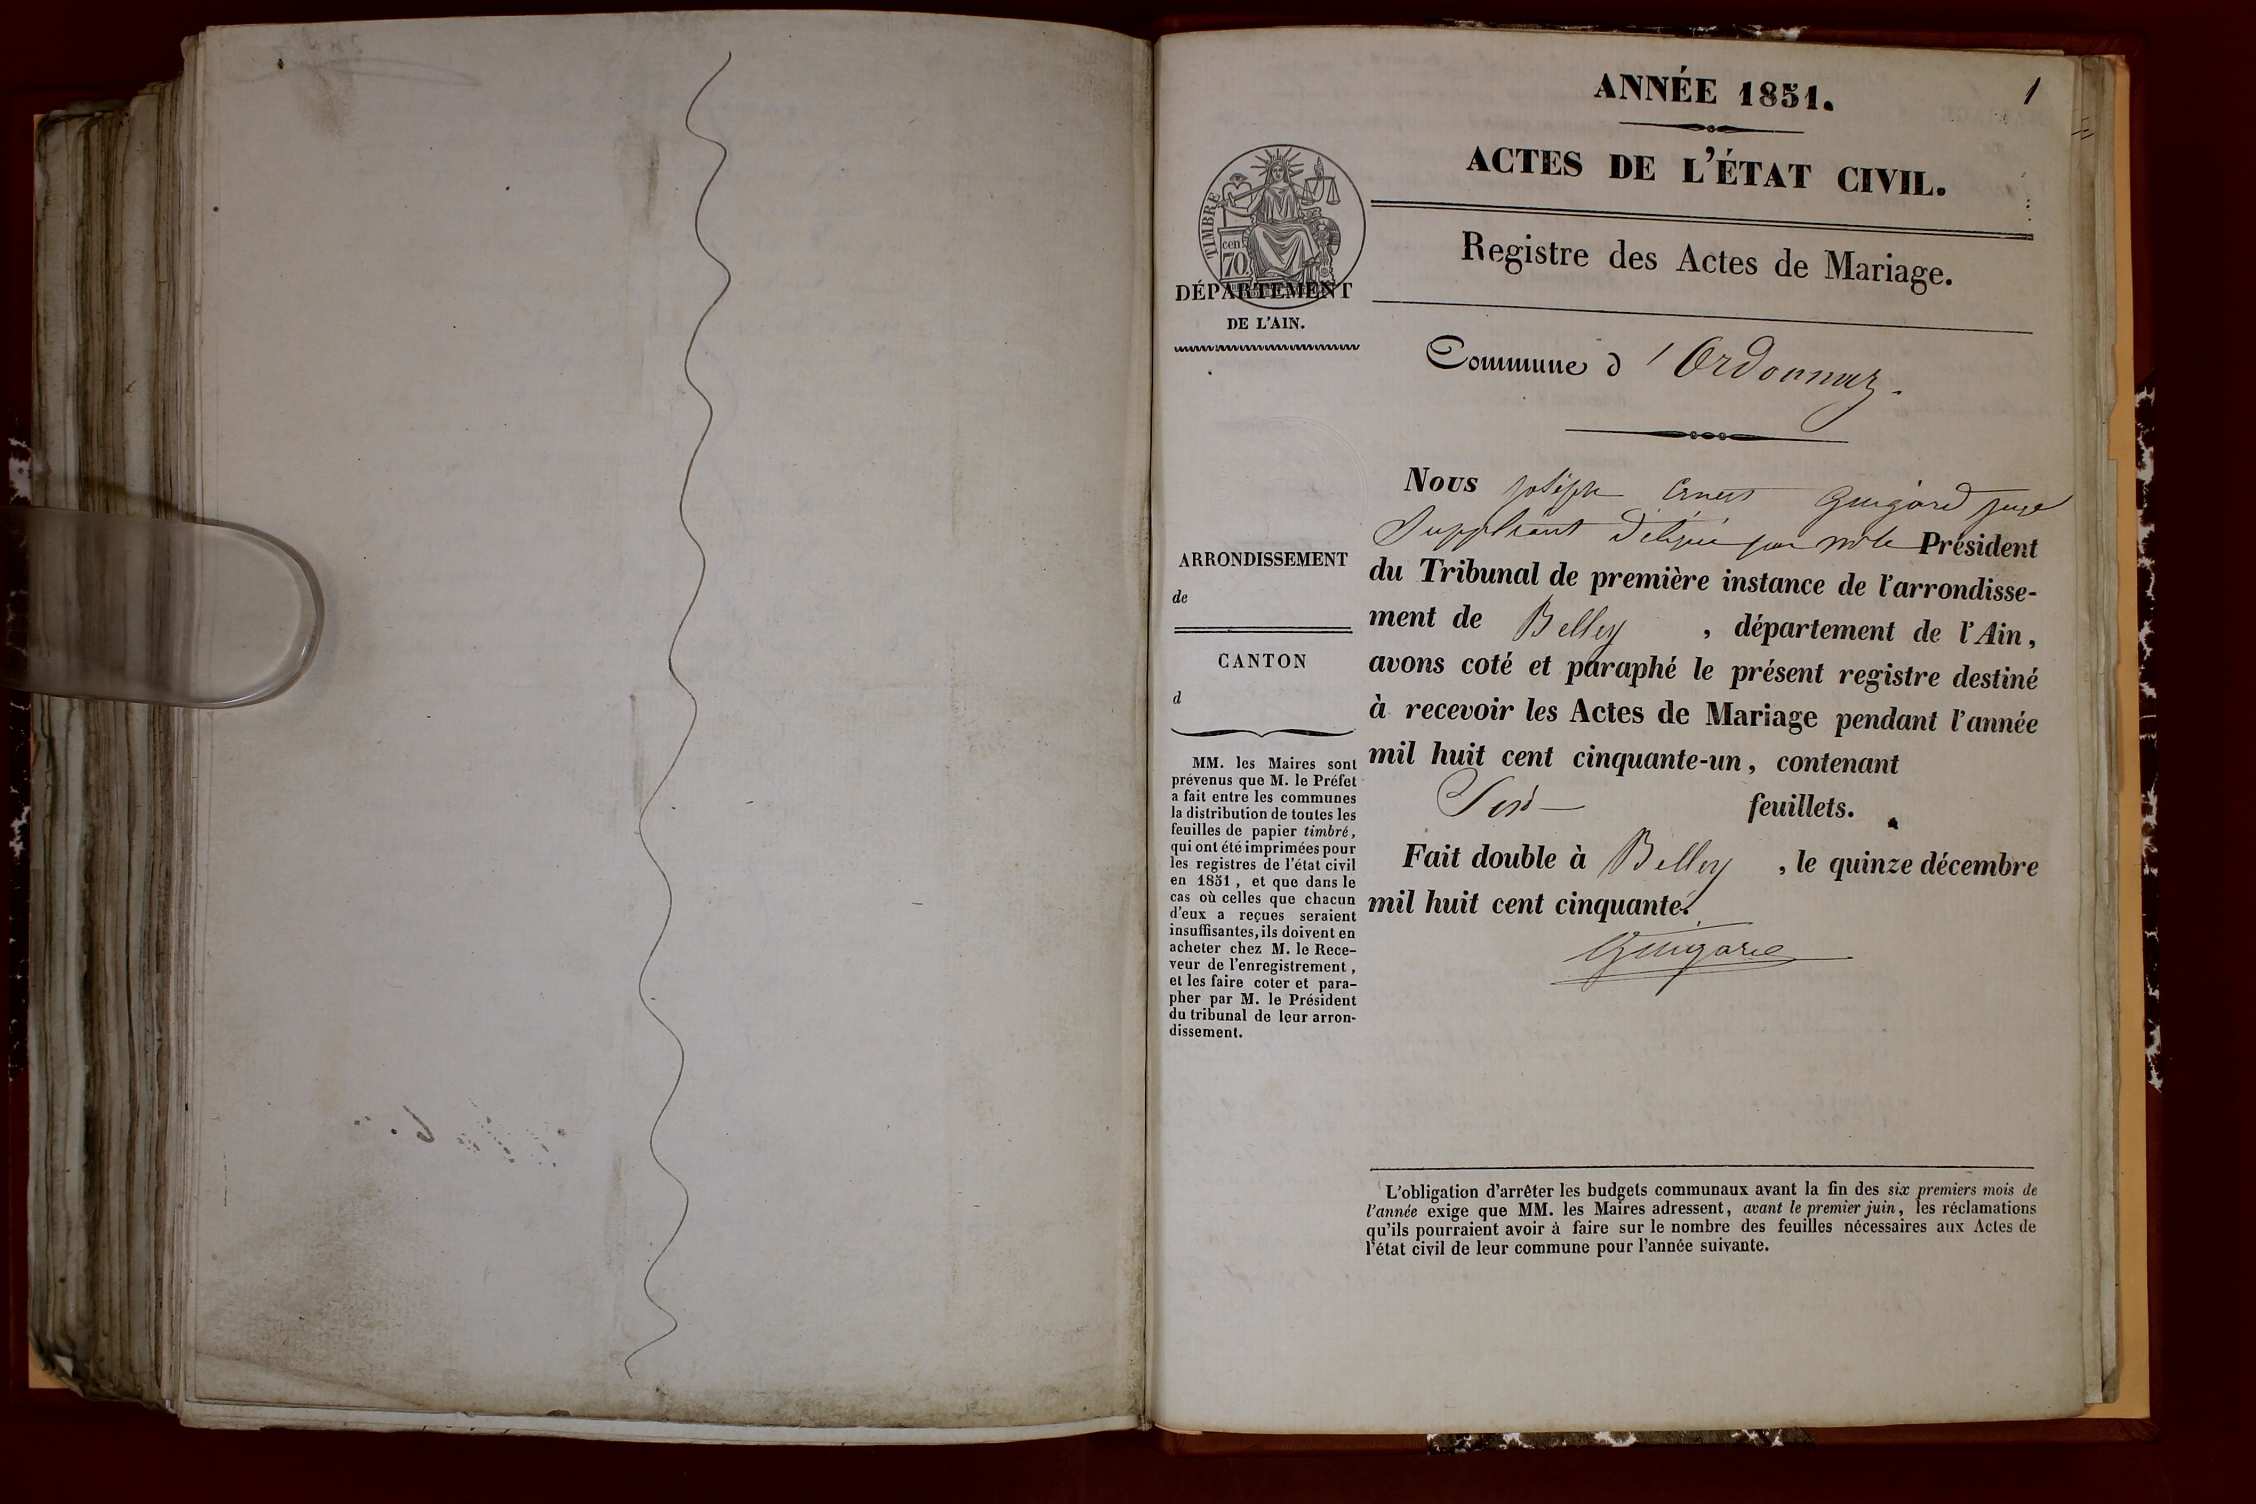 ANNÉE 1851.
1
ACTES DE L'ÉTAT CIVIL.
Registre des Actes de Mariage.
TIMBRE
cen
70
DÉPARTEMENT
DE L'AIN.
Commune d'Ordonnaz.
ARRONDISSEMENT
de
CANTON
d
MM. les Maires sont
prévenus que M. le Préfet
a fait entre les communes
la distribution de toutes les
feuilles de papier timbré,
qui ont été imprimées pour
les registres de l'état civil
en 1851, et que dans le
cas où celles que chacun
d'eux a reçues seraient
insuffisantes, ils doivent en
acheter chez M. le Rece-
veur de l'enregistrement,
et les faire coter et para-
pher par M. le Président
du tribunal de leur arron-
dissement.
Nous joseph Ernest Guigard juge
Suppléant délégué par Président
du Tribunal de première instance de l'arrondisse-
ment de Belley, département de l'Ain,
avons coté et paraphé le présent registre destiné
à recevoir les Actes de Mariage pendant l'année
mil huit cent cinquante-un, contenant
feuillets.
Fait double à Belley, le quinze décembre
mil huit cent cinquante.
Guigard
L'obligation d'arrêter les budgets communaux avant la fin des six premiers mois de
l'année exige que MM. les Maires adressent, avant le premier juin, les réclamations
qu'ils pourraient avoir à faire sur le nombre des feuilles nécessaires aux Actes de
l'état civil de leur commune pour l'année suivante.